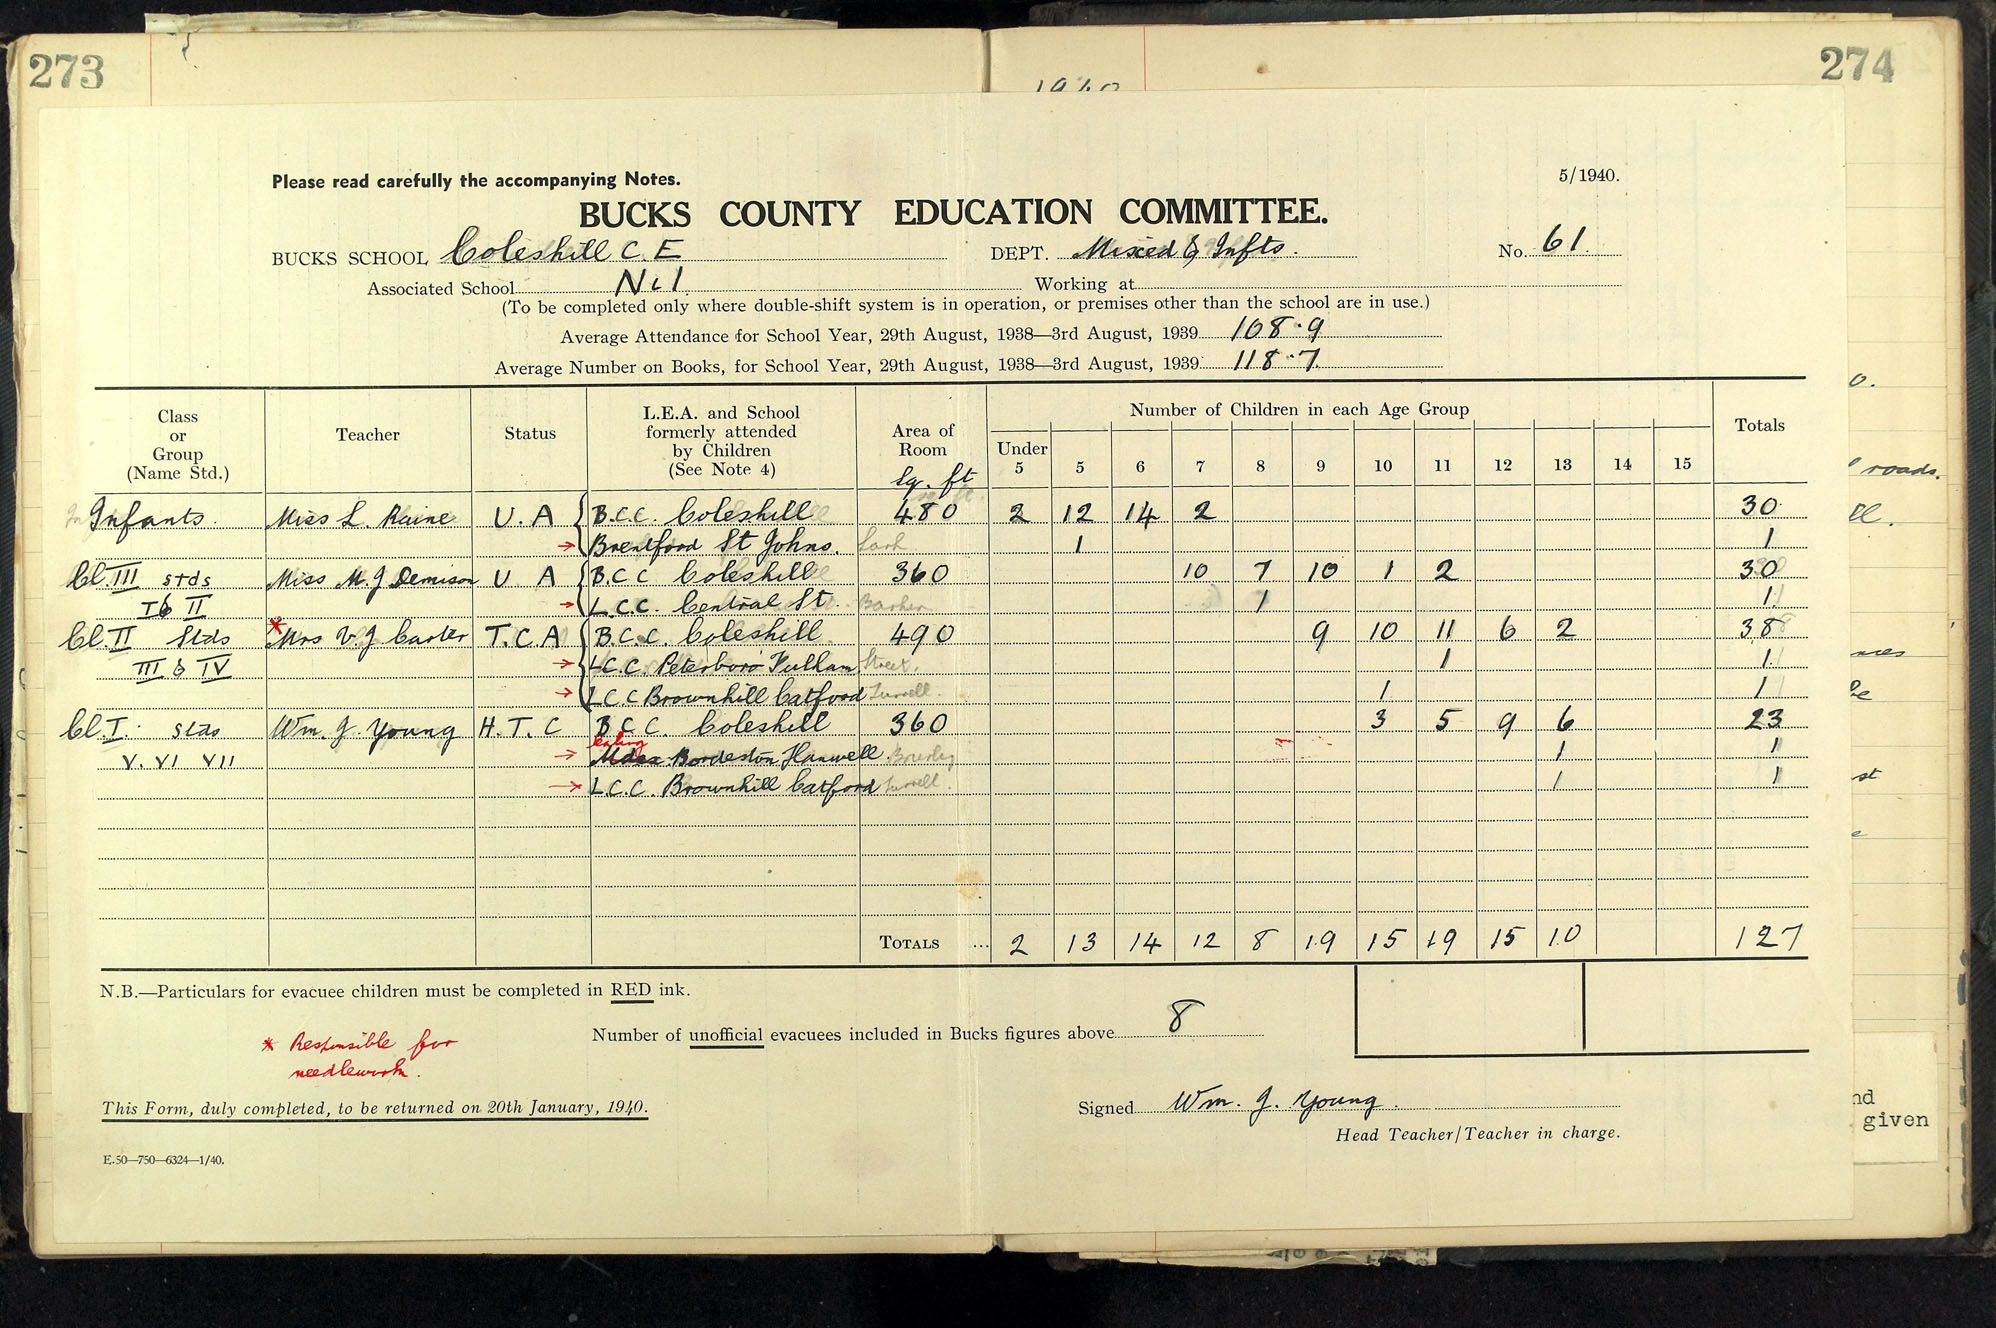 273
274
Please read carefully the accompanying Notes.
5/1940.
BUCKS COUNTY EDUCATION COMMITTEE.
BUCKS SCHOOL Coleshill C.E DEPT. Mixed & Infts. No. 61.
Associated School Nil Working at
(To be completed only where double-shift system is in operation, or premises other than the school are in use.)
Average Attendance for School Year, 29th August, 1938—3rd August, 1939 108.9
Average Number on Books, for School Year, 29th August, 1938—3rd August, 1939 118.7.
Class or Group (Name Std.) Teacher Status L.E.A. and School formerly attended by Children (See Note 4) Area of Room Sq. ft Number of Children in each Age Group Totals
Under 5 5 6 7 8 9 10 11 12 13 14 15
Infants. Miss L. Raine U.A B.C.C. Coleshill 480 2 12 14 2 30
→ Brentford St Johns. 1 1
Cl. III stds Miss M. J Demison U A B.C.C Coleshill 360 10 7 10 1 2 30
I & II → L.C.C. Central St. Barker 1 1
Cl. II Stds * Mrs V. J Carter T.C.A B.C.C. Coleshill 490 9 10 11 6 2 38
III & IV → L.C.C. Peterboro' Fulham Street. 1 1
→ L.C.C Brownhill Catford Turrell. 1 1
Cl. I. stds Wm. J. Young H.T.C B.C.C. Coleshill 360 3 5 9 6 23
Ealing
V. VI VII → Mdex Bordeston Hanwell 1 1
→ L.C.C. Brownhill Catford Turrell. 1 1
TOTALS ... 2 13 14 12 8 19 15 19 15 10 127
N.B.—Particulars for evacuee children must be completed in RED ink.
* Responsible for
needlework.
Number of unofficial evacuees included in Bucks figures above 8
This Form, duly completed, to be returned on 20th January, 1940.
Signed Wm. J. Young.
Head Teacher/Teacher in charge.
E.50—750—6324—1/40.
roads.
given